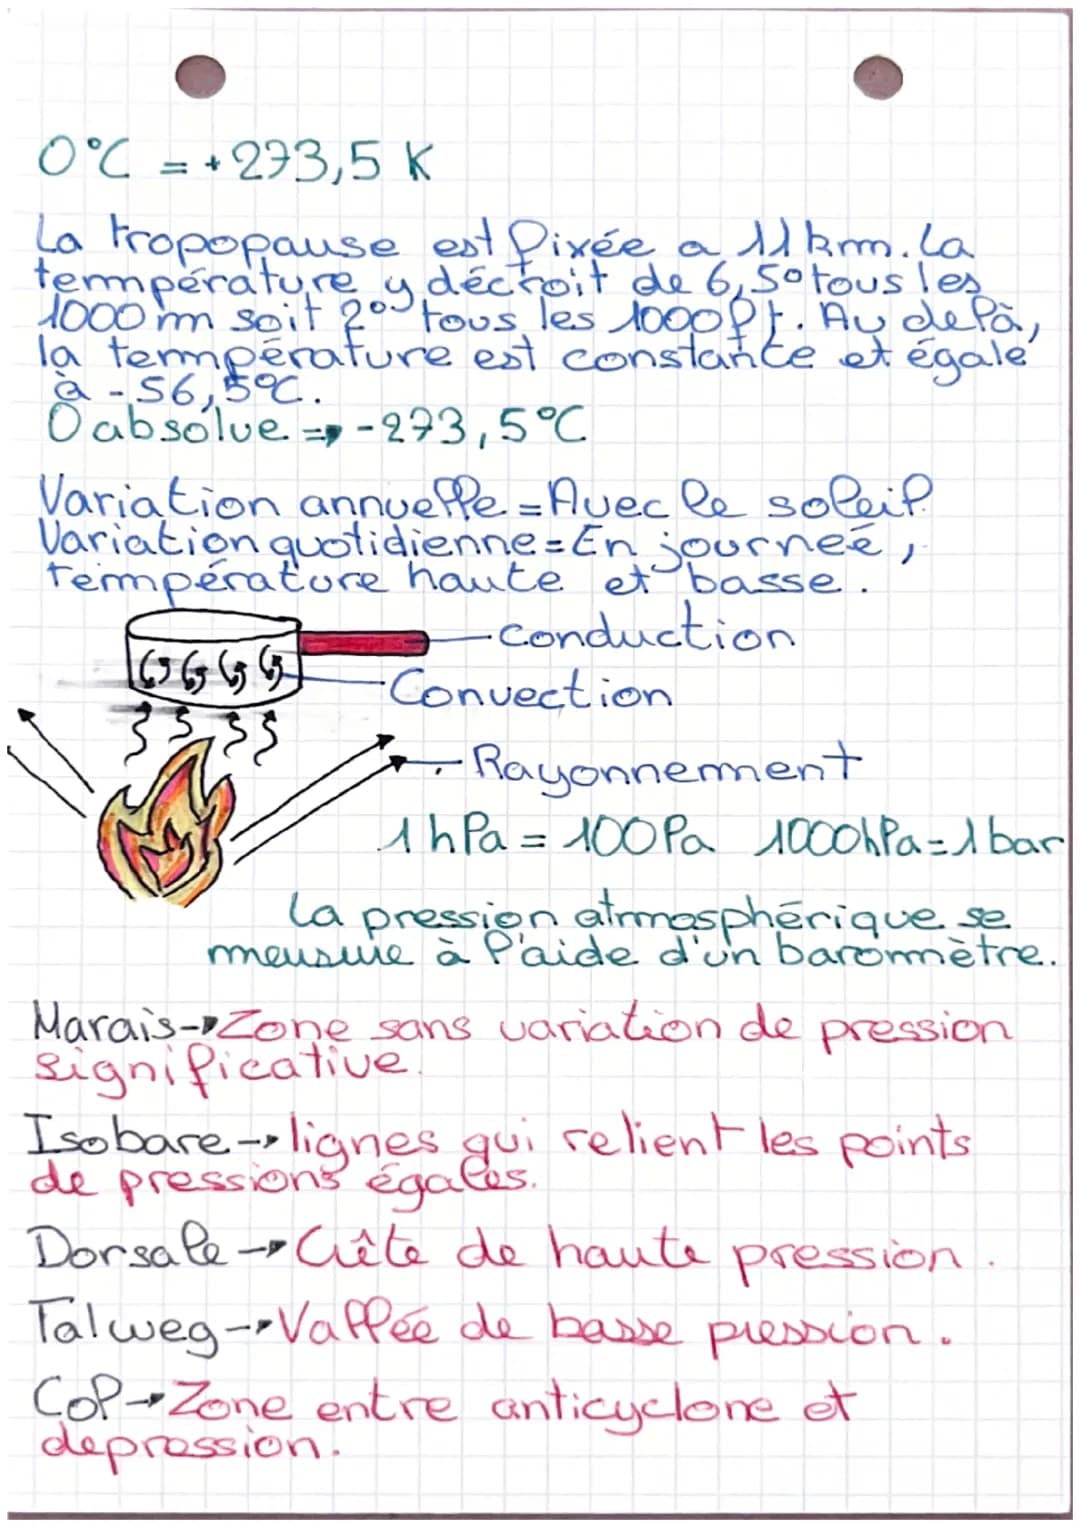 0°C = +273,5 K
La tropopause est fixée a 11km. La
température y décroit de 6,5° tous les
1000 m soit 2° tous les 1000ft. Au delà,
la température est constante et égale
à -56,5°C.
0 absolue → -273,5°C
Variation annuelle = Avec le soleil.
Variation quotidienne = En journeé,
température haute et basse.
Conduction
Convection
Rayonnement
1 hPa = 100Pa 1000hPa = 1 bar
La pression atmosphérique se
meusure à l'aide d'un baromètre.
Marais → Zone sans variation de pression
significative.
Isobare → lignes qui relient les points
de pressions égales.
Dorsale → Crête de haute pression.
Talweg → Vallée de basse pression.
Col → Zone entre anticyclone et
depression.